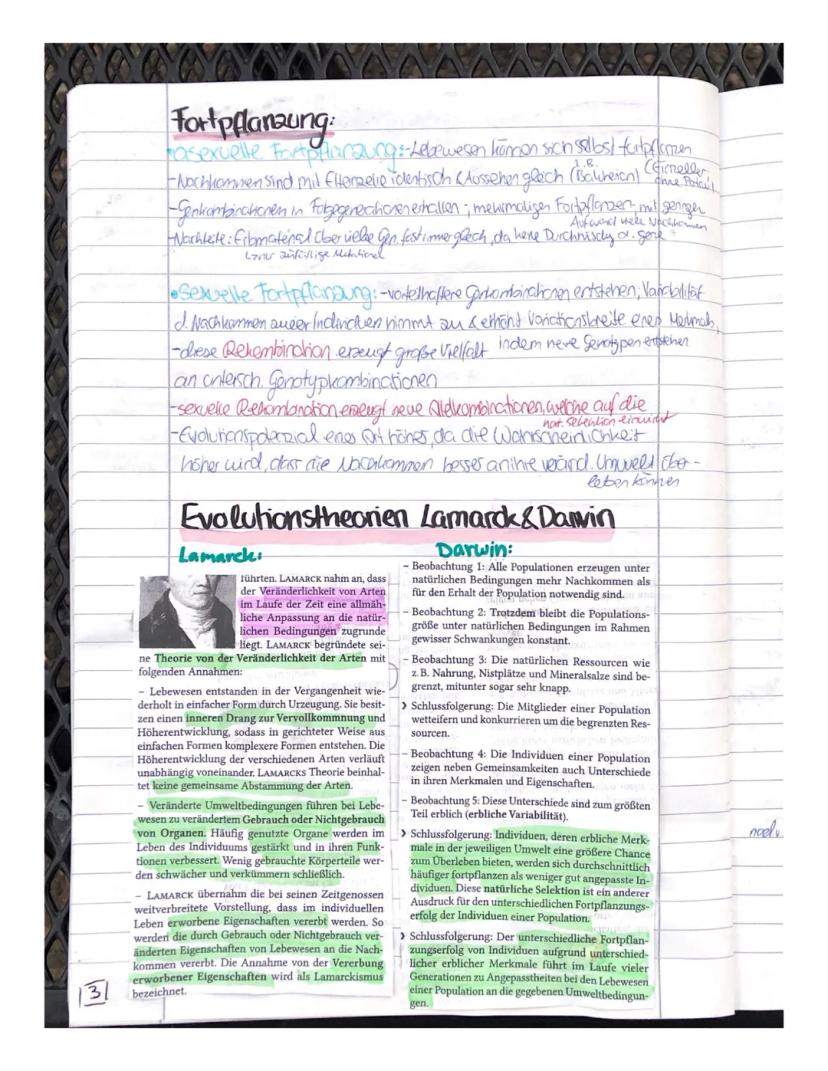 Fortpflanzung:
• asexuelle Fortpflanzung: - Lebewesen können sich selbst fortpflanzen
- Nachkommen sind mit Elternzelle identisch & Aussehen gleich (z.B. Bakterien) (Einzeller
- Genkombinationen in Folgegenerationen erhalten; mehrmaliges Fortpflanzen, mit geringen
Aufwand viele Nachkommen
- Nachteile: Erbmaterial über viele Gen. fast immer gleich, da keine Durchmischg d. Gene
nur zufällige Mutationen
• Sexuelle Fortpflanzung: - vorteilhaftere Genkombinationen entstehen; Variabilität
d. Nachkommen zweier Individuen nimmt zu & erhöht Variationsbreite eines Merkmals,
indem neue Genotypen entstehen
- diese Rekombination erzeugt große Vielfalt
an untersch. Genotypkombinationen
- sexuelle Rekombination erzeugt neue Allelkombinationen, welche auf die
nat. Selektion einwirkt
- Evolutionspotenzial einer Art höher, da die Wahrscheinlichkeit
höher wird, dass die Nachkommen besser an ihre veränd. Umwelt über-
leben können
Evolutionstheorien Lamarck & Darwin
Lamarck:
führten. LAMARCK nahm an, dass
der Veränderlichkeit von Arten
im Laufe der Zeit eine allmäh-
liche Anpassung an die natür-
lichen Bedingungen zugrunde
liegt. LAMARCK begründete sei-
ne Theorie von der Veränderlichkeit der Arten mit
folgenden Annahmen:
– Lebewesen entstanden in der Vergangenheit wie-
derholt in einfacher Form durch Urzeugung. Sie besit-
zen einen inneren Drang zur Vervollkommnung und
Höherentwicklung, sodass in gerichteter Weise aus
einfachen Formen komplexere Formen entstehen. Die
Höherentwicklung der verschiedenen Arten verläuft
unabhängig voneinander. LAMARCKS Theorie beinhal-
tet keine gemeinsame Abstammung der Arten.
– Veränderte Umweltbedingungen führen bei Lebe-
wesen zu verändertem Gebrauch oder Nichtgebrauch
von Organen. Häufig genutzte Organe werden im
Leben des Individuums gestärkt und in ihren Funk-
tionen verbessert. Wenig gebrauchte Körperteile wer-
den schwächer und verkümmern schließlich.
– LAMARCK übernahm die bei seinen Zeitgenossen
weitverbreitete Vorstellung, dass im individuellen
Leben erworbene Eigenschaften vererbt werden. So
werden die durch Gebrauch oder Nichtgebrauch ver-
änderten Eigenschaften von Lebewesen an die Nach-
kommen vererbt. Die Annahme von der Vererbung
erworbener Eigenschaften wird als Lamarckismus
bezeichnet.
3
Darwin:
– Beobachtung 1: Alle Populationen erzeugen unter
natürlichen Bedingungen mehr Nachkommen als
für den Erhalt der Population notwendig sind.
– Beobachtung 2: Trotzdem bleibt die Populations-
größe unter natürlichen Bedingungen im Rahmen
gewisser Schwankungen konstant.
– Beobachtung 3: Die natürlichen Ressourcen wie
z. B. Nahrung, Nistplätze und Mineralsalze sind be-
grenzt, mitunter sogar sehr knapp.
› Schlussfolgerung: Die Mitglieder einer Population
wetteifern und konkurrieren um die begrenzten Res-
sourcen.
– Beobachtung 4: Die Individuen einer Population
zeigen neben Gemeinsamkeiten auch Unterschiede
in ihren Merkmalen und Eigenschaften.
– Beobachtung 5: Diese Unterschiede sind zum größten
Teil erblich (erbliche Variabilität).
› Schlussfolgerung: Individuen, deren erbliche Merk-
male in der jeweiligen Umwelt eine größere Chance
zum Überleben bieten, werden sich durchschnittlich
häufiger fortpflanzen als weniger gut angepasste In-
dividuen. Diese natürliche Selektion ist ein anderer
Ausdruck für den unterschiedlichen Fortpflanzungs-
erfolg der Individuen einer Population.
› Schlussfolgerung: Der unterschiedliche Fortpflan-
zungserfolg von Individuen aufgrund unterschied-
licher erblicher Merkmale führt im Laufe vieler
Generationen zu Angepasstheiten bei den Lebewesen
einer Population an die gegebenen Umweltbedingun-
gen.